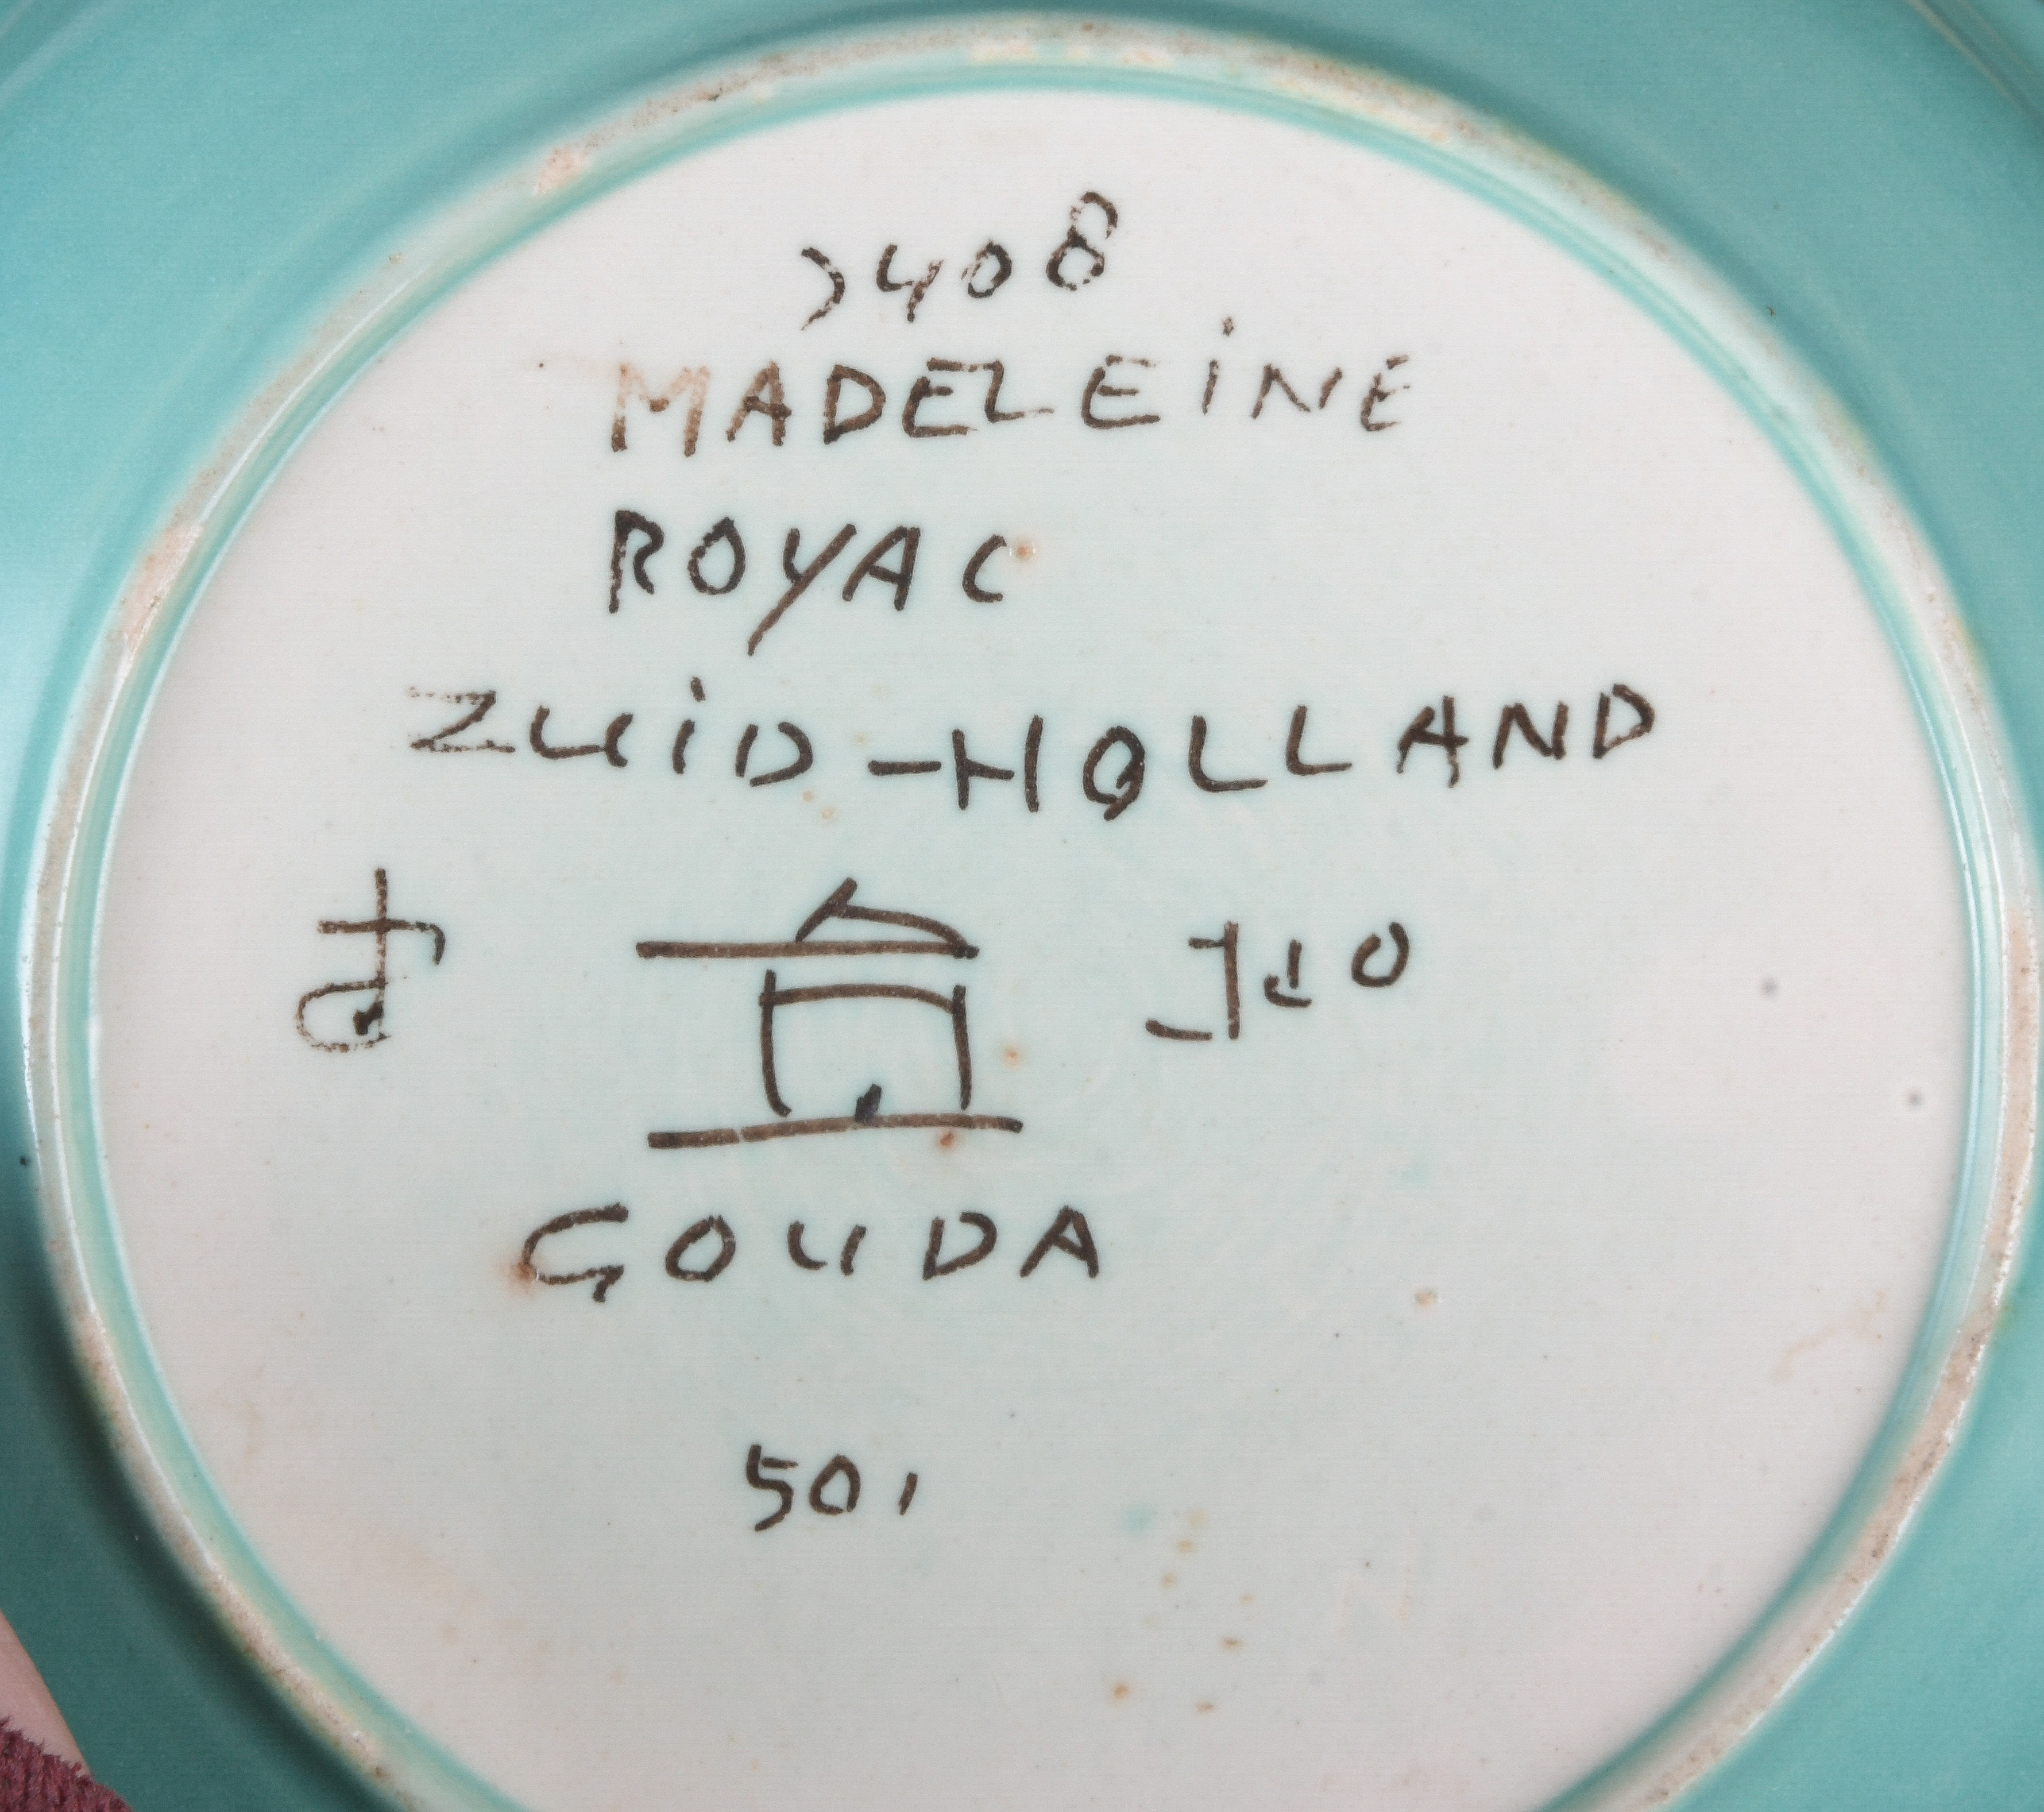 7408
MADELEINE
ROYAL
ZUID-HOLLAND
GOUDA
501